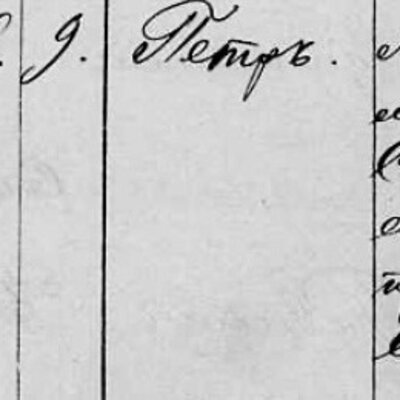 9. Петръ.